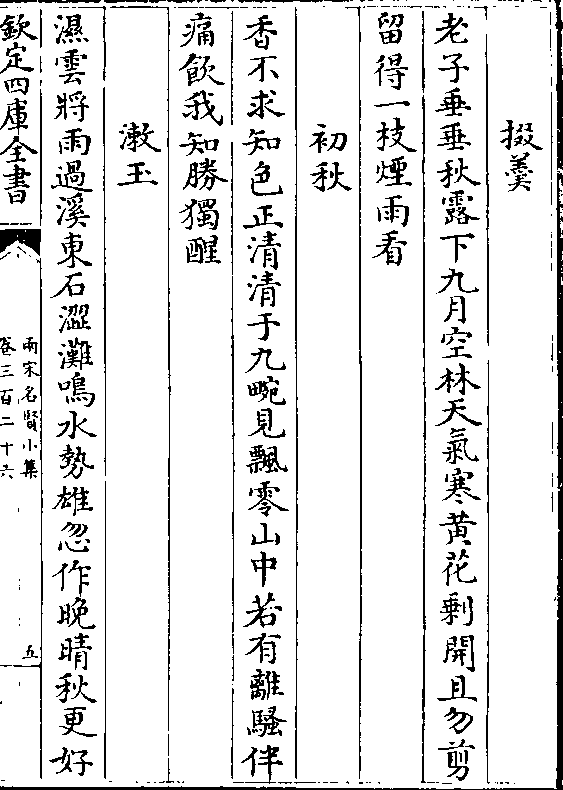 掇羹
老子垂垂秋露下九月空林天氣寒黄花剰開且勿剪
留得一枝煙雨看
初秋
香不求知色正清清于九畹見飄零山中若有離騷伴
痛飲我知勝獨醒
漱玉
濕雲將雨過溪東石澀灘鳴水勢雄忽作晚晴秋更好
欽定四庫全書
兩宋名賢小集
卷三百二十六
五